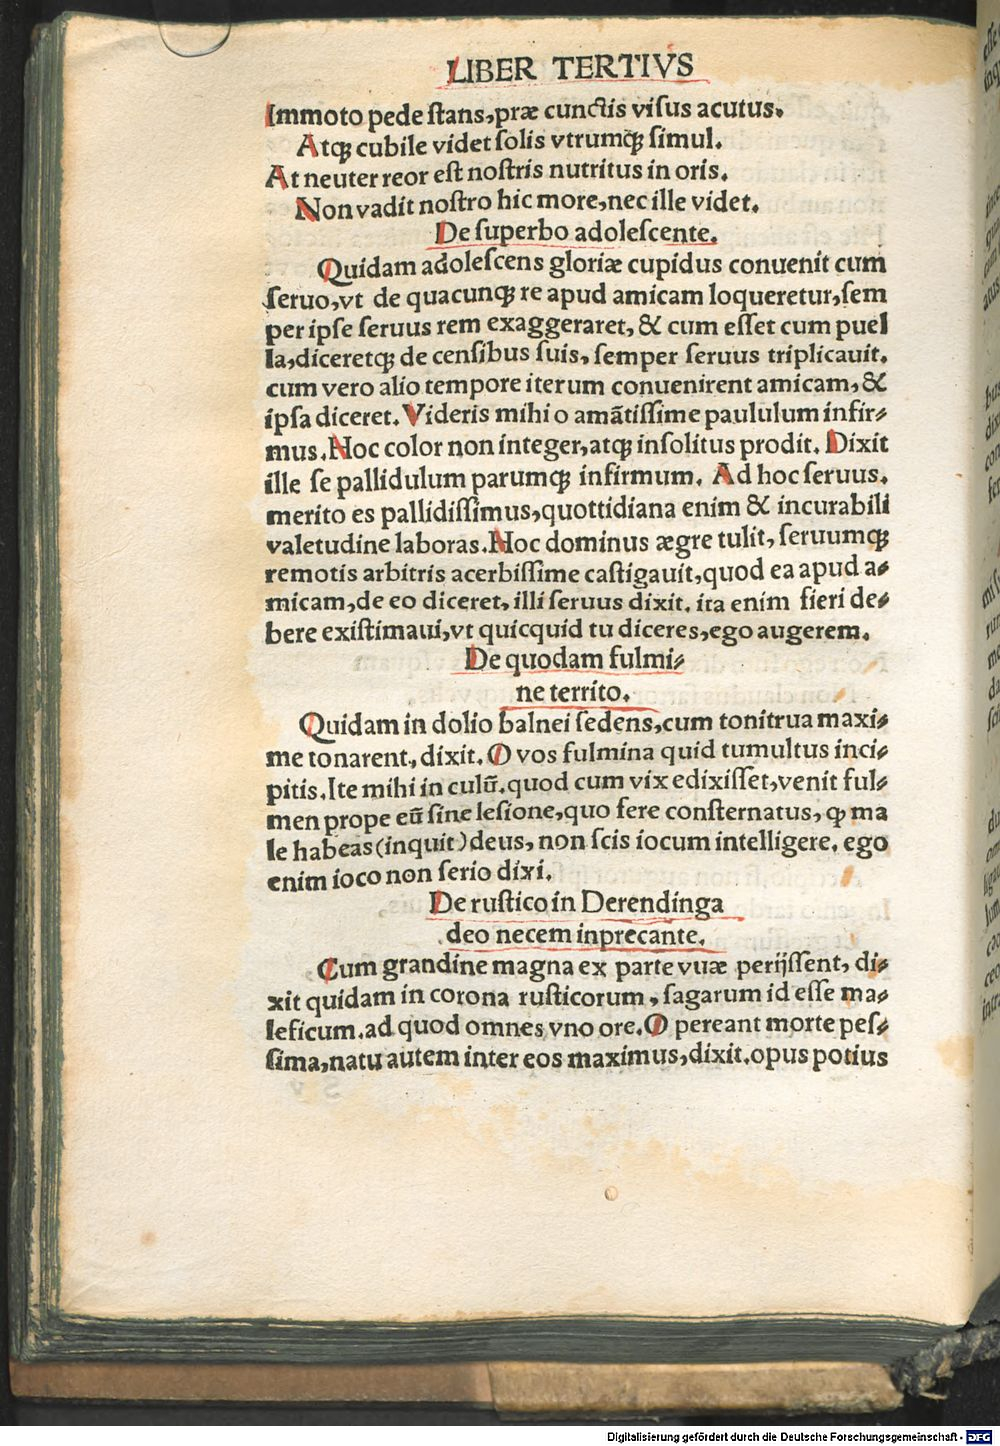 LIBER TERTIVS
Immoto pede ſtans, præ cunctis viſus acutus.
Atqꝫ cubile videt ſolis vtrumqꝫ ſimul.
At neuter reor eſt noſtris nutritus in oris.
Non vadit noſtro hic more, nec ille videt.
De ſuperbo adoleſcente.
Quidam adoleſcens gloriæ cupidus conuenit cum
ſeruo, vt de quacunqꝫ re apud amicam loqueretur, ſem
per ipſe ſeruus rem exaggeraret, & cum eſſet cum puel
la, diceretqꝫ de cenſibus ſuis, ſemper ſeruus triplicauit.
cum vero alio tempore iterum conuenirent amicam, &
ipſa diceret. Videris mihi o amãtiſſime paululum infir⸗
mus. Hoc color non integer, atqꝫ inſolitus prodit. Dixit
ille ſe pallidulum parumqꝫ infirmum. Ad hoc ſeruus.
merito es pallidiſſimus, quottidiana enim & incurabili
valetudine laboras. Hoc dominus ægre tulit, ſeruumqꝫ
remotis arbitris acerbiſſime caſtigauit, quod ea apud a⸗
micam, de eo diceret, illi ſeruus dixit. ita enim fieri de⸗
bere exiſtimaui, vt quicquid tu diceres, ego augerem.
De quodam fulmi⸗
ne territo.
Quidam in dolio balnei ſedens, cum tonitrua maxi⸗
me tonarent, dixit. O vos fulmina quid tumultus inci⸗
pitis. Ite mihi in culũ. quod cum vix edixiſſet, venit ful⸗
men prope eũ ſine leſione, quo fere conſternatus, ꝙ ma
le habeas (inquit) deus, non ſcis iocum intelligere. ego
enim ioco non ſerio dixi.
De ruſtico in Derendinga
deo necem inprecante.
Cum grandine magna ex parte vuæ perijſſent, di⸗
xit quidam in corona ruſticorum, ſagarum id eſſe ma⸗
leficum. ad quod omnes vno ore. O pereant morte peſ⸗
ſima, natu autem inter eos maximus, dixit. opus potius
Digitalisierung gefördert durch die Deutsche Forschungsgemeinschaft - DFG